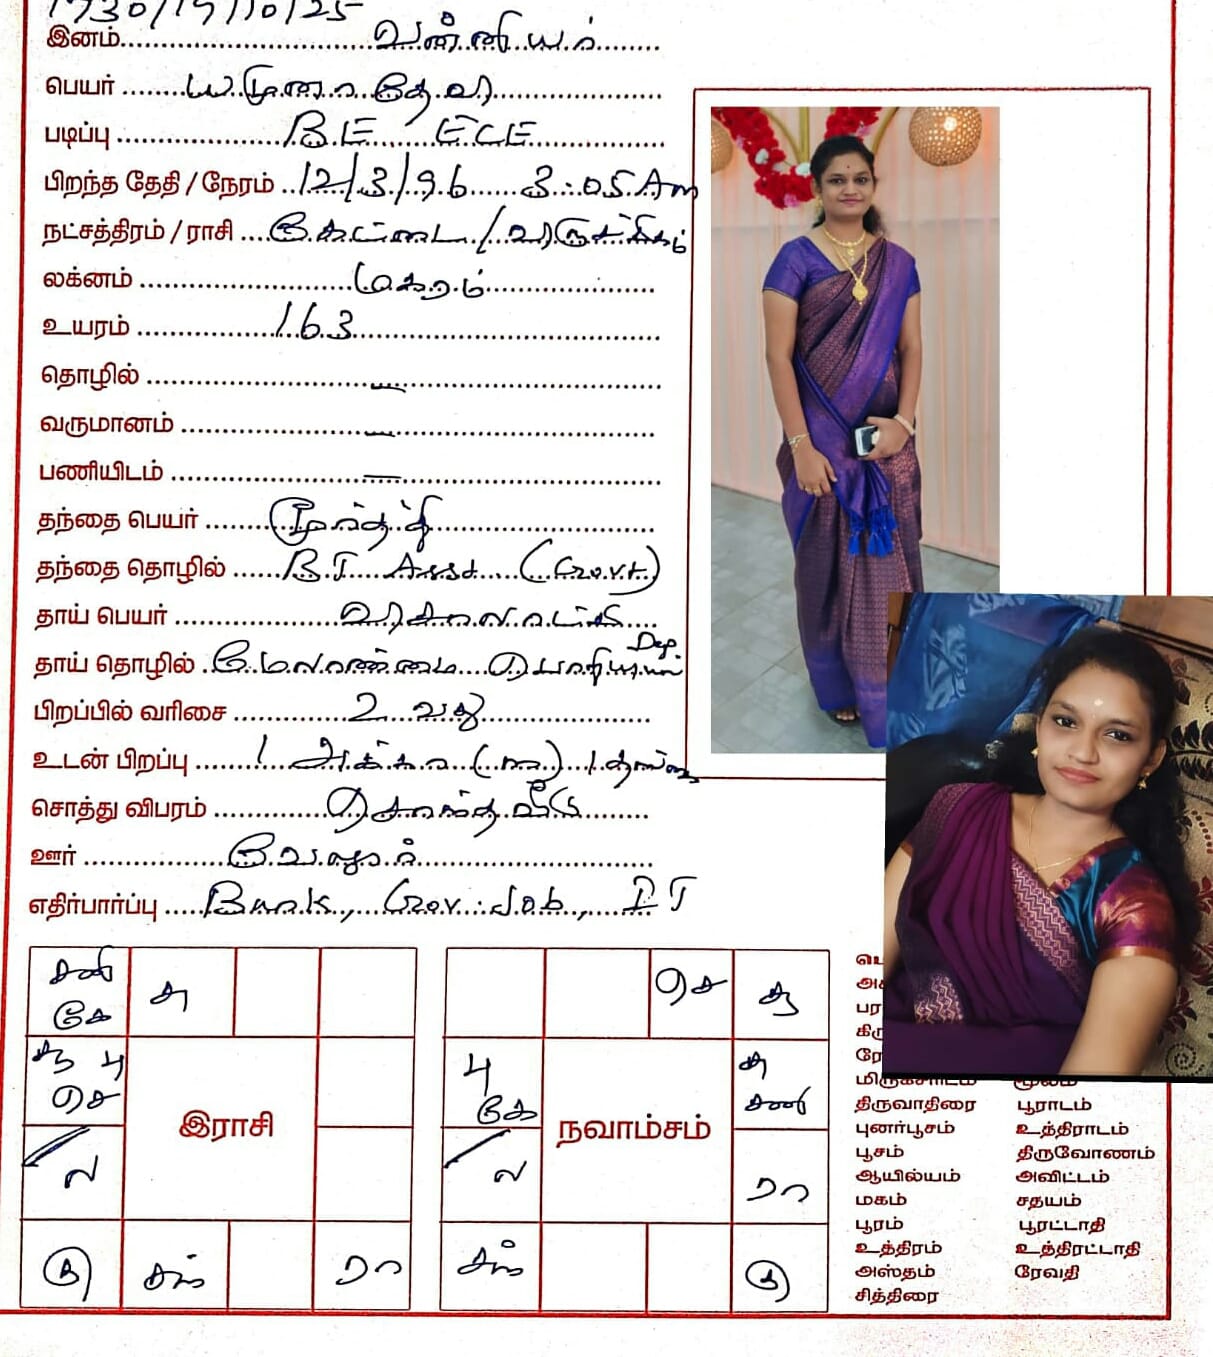 1730/19/10/25
இனம் வன்னியர்
பெயர் யமுனா தேவி
படிப்பு B.E ECE
பிறந்த தேதி / நேரம் 12/3/96 3:05 Am
நட்சத்திரம் / ராசி கேட்டை / விருச்சிகம்
லக்னம் மகரம்
உயரம் 163
தொழில் —
வருமானம் —
பணியிடம் —
தந்தை பெயர் மூர்த்தி
தந்தை தொழில் B.T Asst (Govt)
தாய் பெயர் விசாலாட்சி
தாய் தொழில் மேலாண்மை Dep.
பிறப்பில் வரிசை 2 வது
உடன் பிறப்பு 1 அக்கா (ம) 1 தங்கை
சொத்து விபரம் சொந்த வீடு
ஊர் வேலூர்
எதிர்பார்ப்பு Bank, Gov. Job, IT
சனி கே
சு
சூ பு செ
ல
கு
சந்
ரா
இராசி
செ
சூ
பு கே
சு சனி
ல
ரா
சந்
கு
நவாம்சம்
திருவாதிரை பூராடம்
புனர்பூசம் உத்திராடம்
பூசம் திருவோணம்
ஆயில்யம் அவிட்டம்
மகம் சதயம்
பூரம் பூரட்டாதி
உத்திரம் உத்திரட்டாதி
அஸ்தம் ரேவதி
சித்திரை